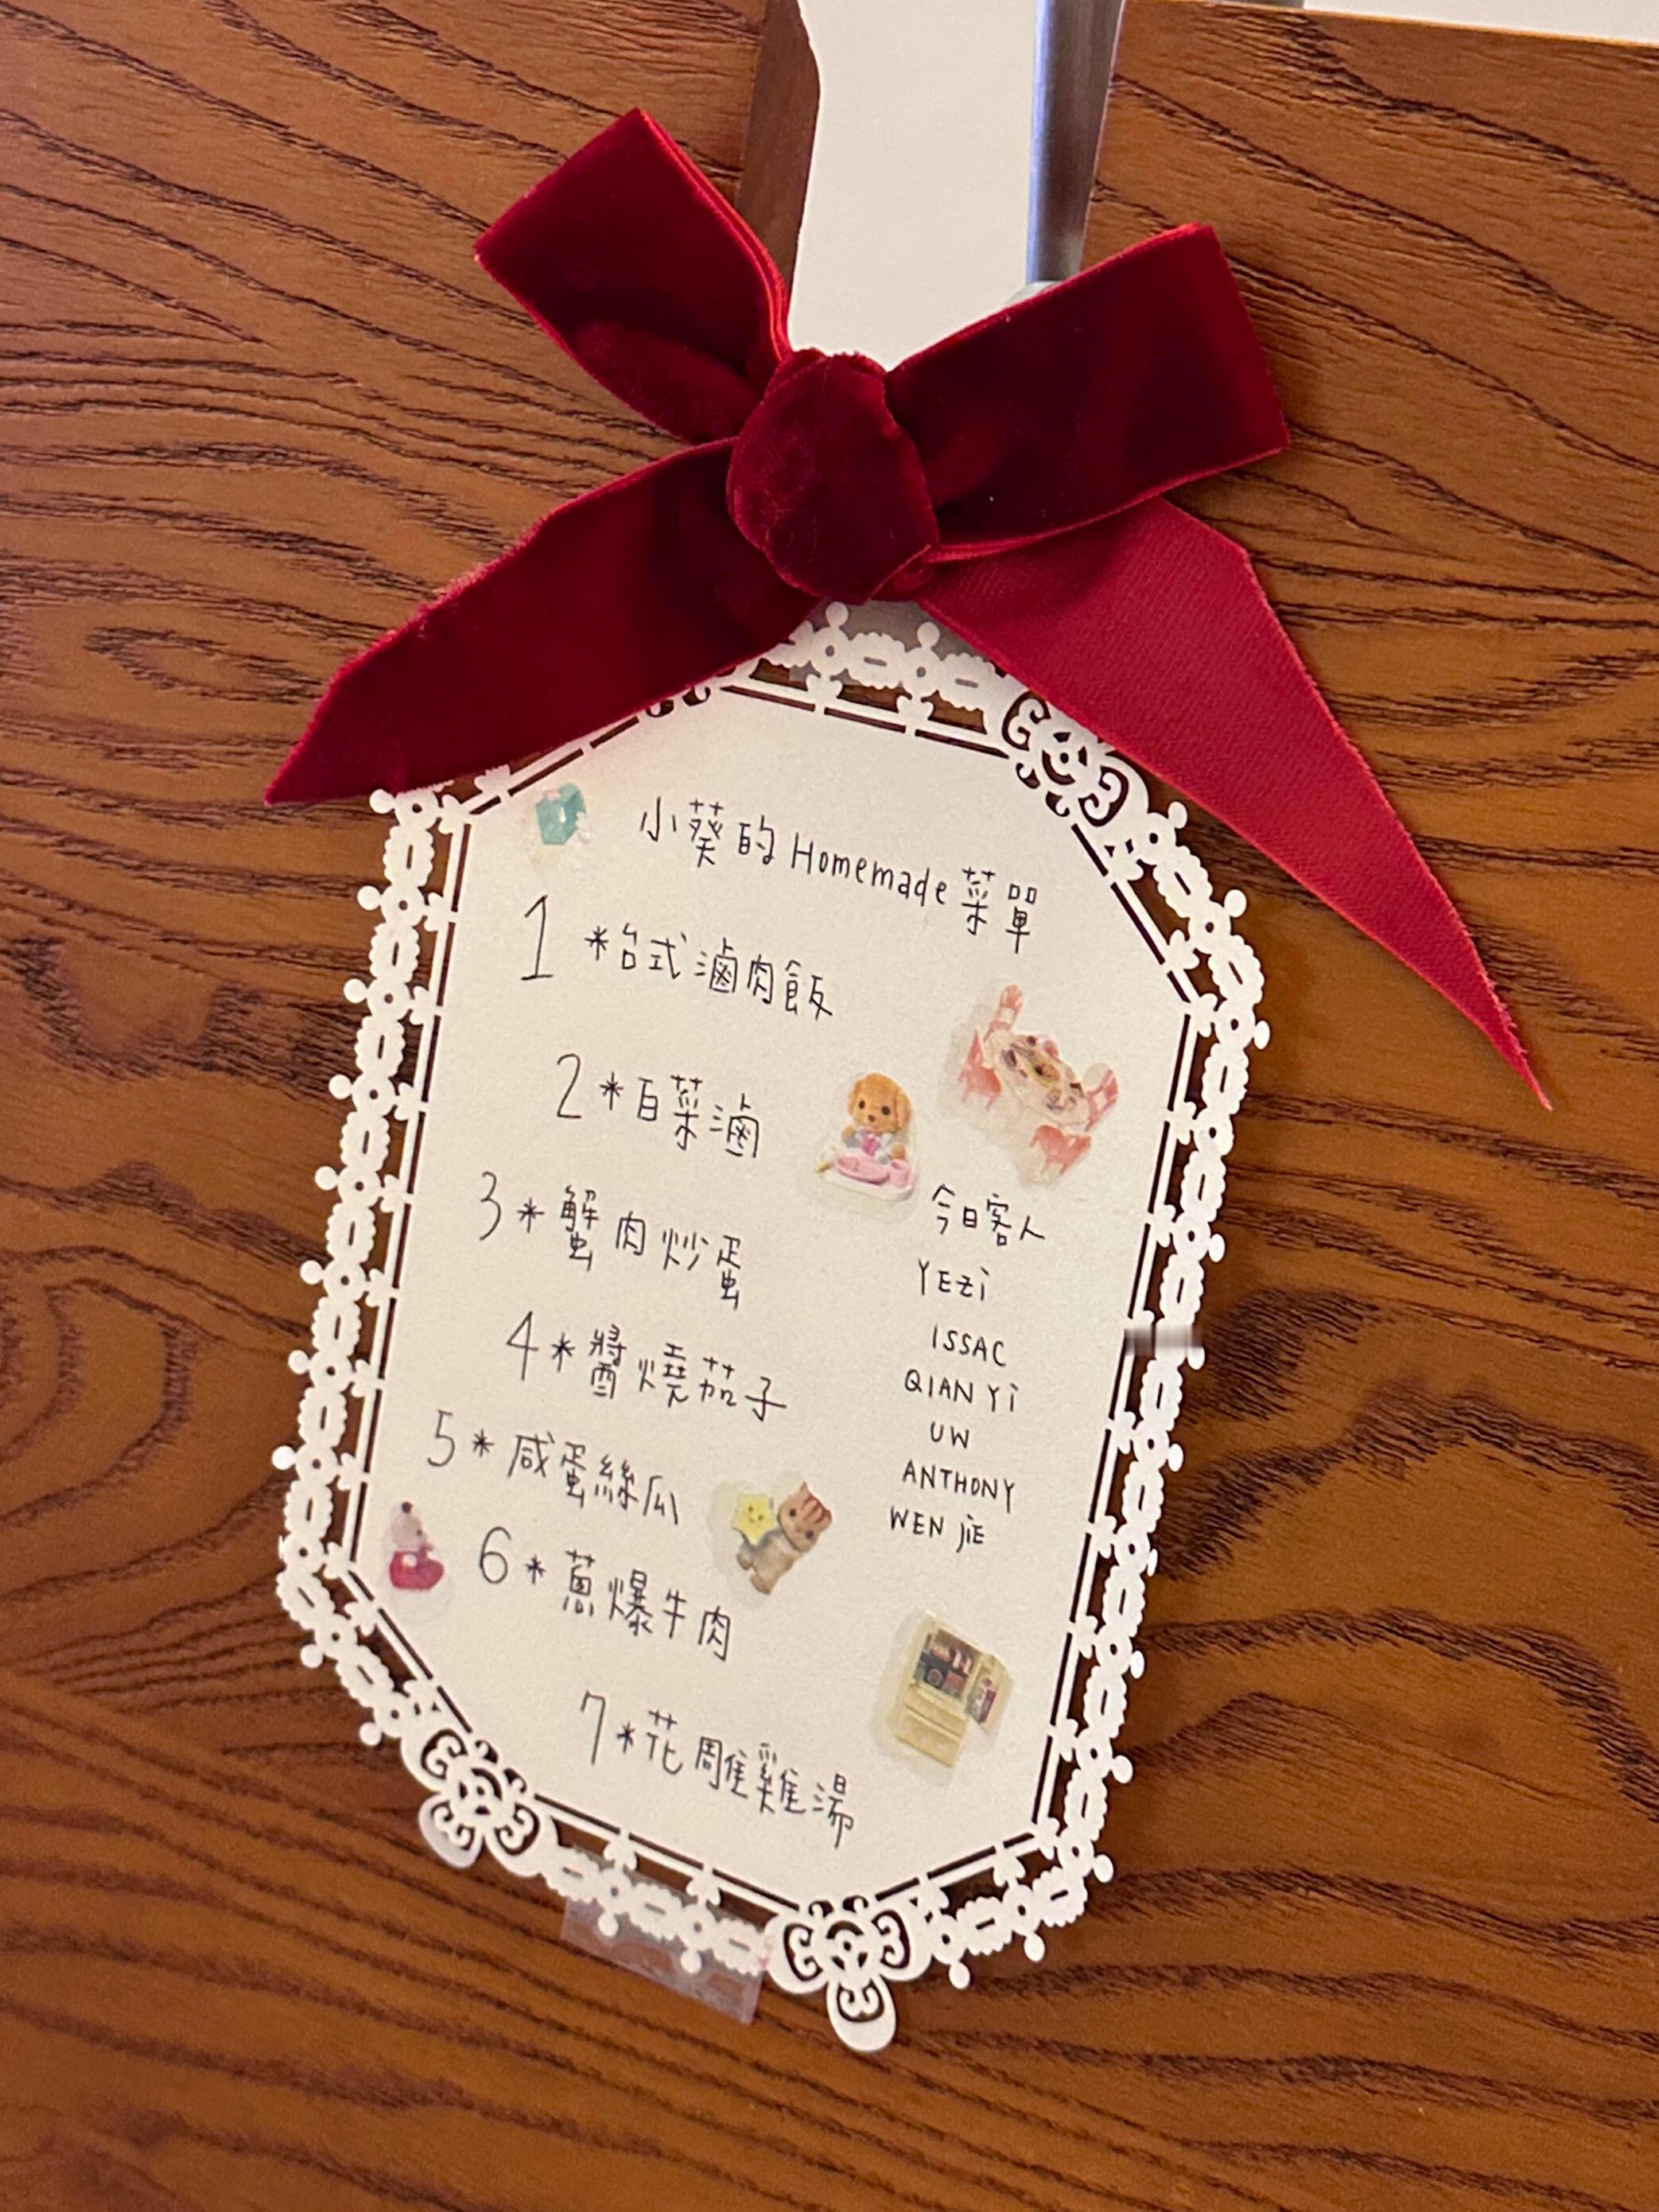 小葵的Homemade菜單
1 *台式滷肉飯
2 *白菜滷
3 *蟹肉炒蛋
4 *醬燒茄子
5 *咸蛋絲瓜
6 *蔥爆牛肉
7 *花雕雞湯
今日客人
YEZi
ISSAC
QIAN Yi
UW
ANTHONY
WEN JiE